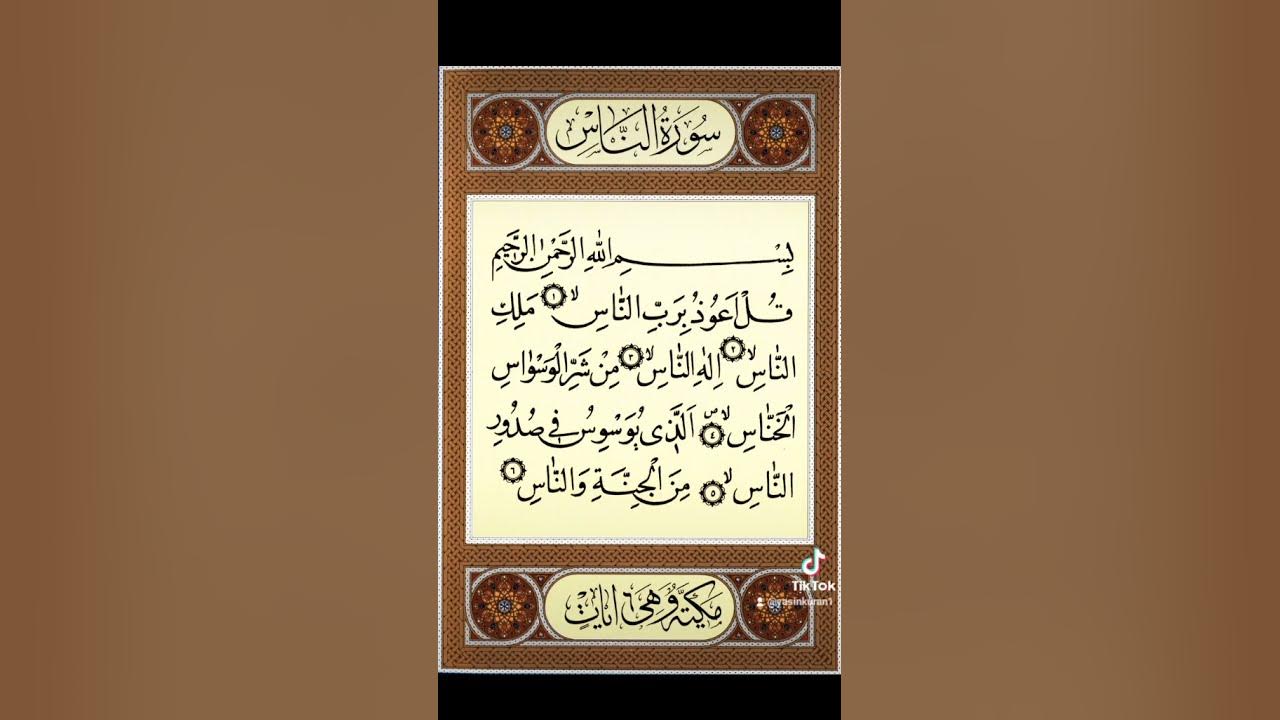 سُورَةُ النَّاسِ
بِسْمِ اللّٰهِ الرَّحْمٰنِ الرَّحِيمِ
قُلْ اَعُوذُ بِرَبِّ النَّاسِۙ ﴿١﴾ مَلِكِ
النَّاسِۙ ﴿٢﴾ اِلٰهِ النَّاسِۙ ﴿٣﴾ مِنْ شَرِّ الْوَسْوَاسِ
الْخَنَّاسِۙۖ ﴿٤﴾ اَلَّذ۪ي يُوَسْوِسُ ف۪ي صُدُورِ
النَّاسِۙ ﴿٥﴾ مِنَ الْجِنَّةِ وَالنَّاسِ ﴿٦﴾
مَكِّيَّةٌ وَهِيَ ٦ اٰيَاتٍ
TikTok
@yasinkuran1